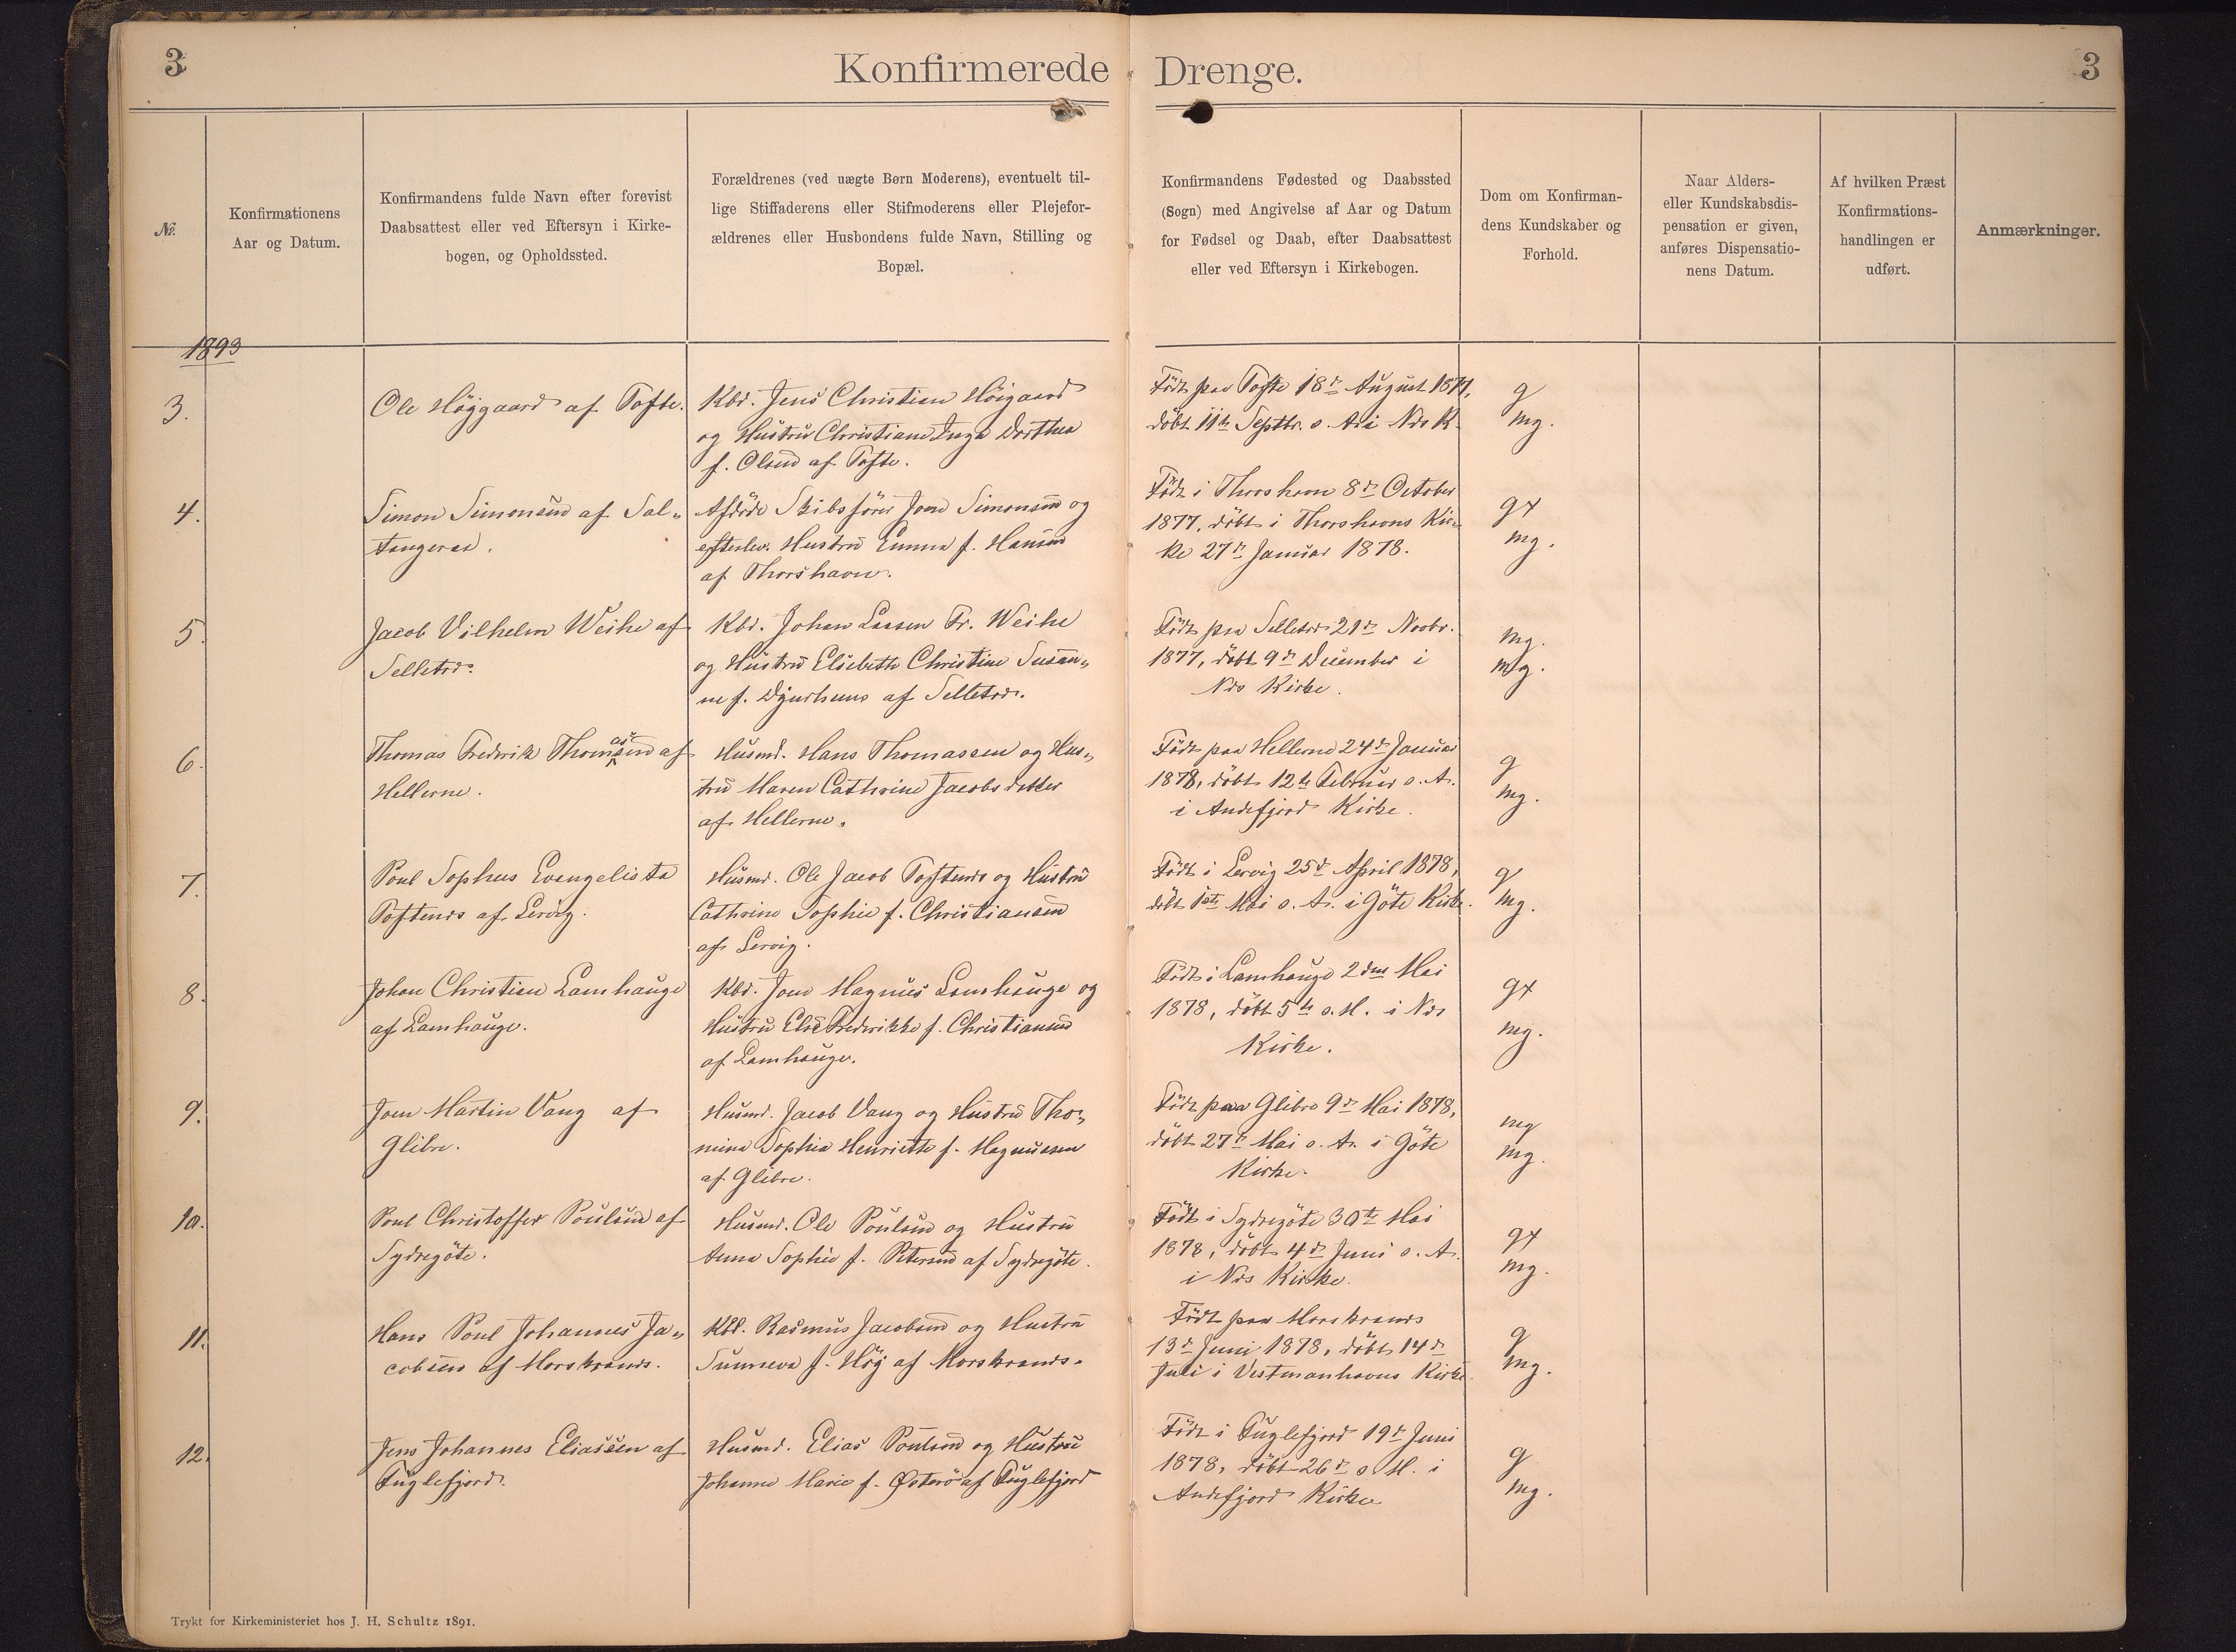 3
Konfirmerede Drenge.
3
No.
Konfirmationens
Aar og Datum.
Konfirmandens fulde Navn efter forevist
Daabsattest eller ved Eftersyn i Kirke-
bogen, og Opholdssted.
Forældrenes (ved uægte Børn Moderens), eventuelt til-
lige Stiffaderens eller Stifmoderens eller Plejefor-
ældrenes eller Husbondens fulde Navn, Stilling og
Bopæl.
Konfirmandens Fødested og Daabssted
(Sogn) med Angivelse af Aar og Datum
for Fødsel og Daab, efter Daabsattest
eller ved Eftersyn i Kirkebogen.
Dom om Konfirman-
dens Kundskaber og
Forhold.
Naar Alders-
eller Kundskabsdis-
pensation er given,
anføres Dispensatio-
nens Datum.
Af hvilken Præst
Konfirmations-
handlingen er
udført.
Anmærkninger.
1893
3.
Ole Höjgaard af Tofte.
Kbd. Jens Christian Höigaard
og Hustru Christiane Inga Dorthea
f. Olsen af Tofte.
Födt paa Tofte 18de August 1877,
döbt 11te Septbr. s. A. i Nds K.
g
mg.
4.
Simon Simonsen af Sal„
tangeraa.
Afdöde Skibsförer Joen Simonsen og
efterlev. Hustru Emma f. Hansen
af Thorshavn.
Födt i Thorshavn 8de October
1877, döbt i Thorshavns Kir„
ke 27de Januar 1878.
gx
mg.
5.
Jacob Vilhelm Weihe af
Selletrd.
Kbd. Johan Lassen Fr. Weihe
og Hustru Elsebeth Christine Susan„
ne f. Djurhuus af Selletrd.
Födt paa Selletrd 21de Novbr.
1877, döbt 9de December i
Nds Kirke.
mg.
mg.
6.
Thomas Frederik Thomassen af
Hellerne.
Husmd. Hans Thomassen og Hus„
tru Maren Cathrine Jacobsdatter
af Hellerne.
Födt paa Hellerne 24de Januar
1878, döbt 12te Februar s. A.
i Andefjord Kirke.
g
mg.
7.
Poul Sophus Evangelista
Toftenes af Lervig.
Husmd. Ole Jacob Toftenes og Hustru
Cathrine Sophie f. Christiansen
af Lervig.
Födt i Lervig 25de April 1878,
döbt 1ste Mai s. A. i Göte Kirke.
g
mg.
8.
Johan Christian Lamhauge
af Lamhauge.
Kbd. Joen Magnus Lamhauge og
Hustru Else Frederikke f. Christiansen
af Lamhauge.
Födt i Lamhauge 2den Mai
1878, döbt 5te s. M. i Nds
Kirke.
gx
mg.
9.
Joen Martin Vang af
Glibre.
Husmd. Jacob Vang og Hustru Tho„
mine Sophia Henriette f. Magnussen
af Glibre.
Födt paa Glibre 9de Mai 1878,
döbt 27de Mai s. A. i Göte
Kirke.
mg
mg.
10.
Poul Christoffer Poulsen af
Sydregöte.
Husmd. Ole Poulsen og Hustru
Anna Sophie f. Petersen af Sydregöte.
Födt i Sydregöte 30te Mai
1878, döbt 4de Juni s. A.
i Nds Kirke.
gx
mg.
11.
Hans Poul Johannes Ja„
cobsen af Morskranes.
Kbd. Rasmus Jacobsen og Hustru
Sunneva f. Höj af Morskranes.
Födt paa Morskranes
13de Juni 1878, döbt 14de
Juli i Vestmanhavns Kirke.
g
mg.
12.
Jens Johannes Eliassen af
Fuglefjord.
Husmd. Elias Poulsen og Hustru
Johanne Marie f. Østerö af Fuglefjord
Födt i Fuglefjord 19de Juni
1878, döbt 26de s. M. i
Andefjord Kirke
g
mg.
Trykt for Kirkeministeriet hos J. H. Schultz 1891.